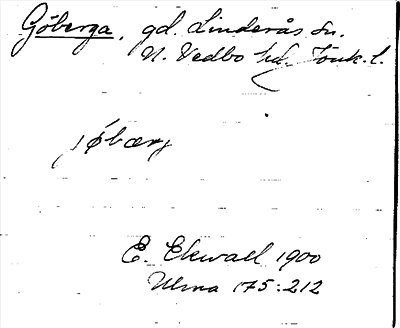 Göberga, gd. Linderås sn.
N. Vedbo hd. Jönk. l.
jøbærj
E. Ekwall 1900
Ulma 175:212